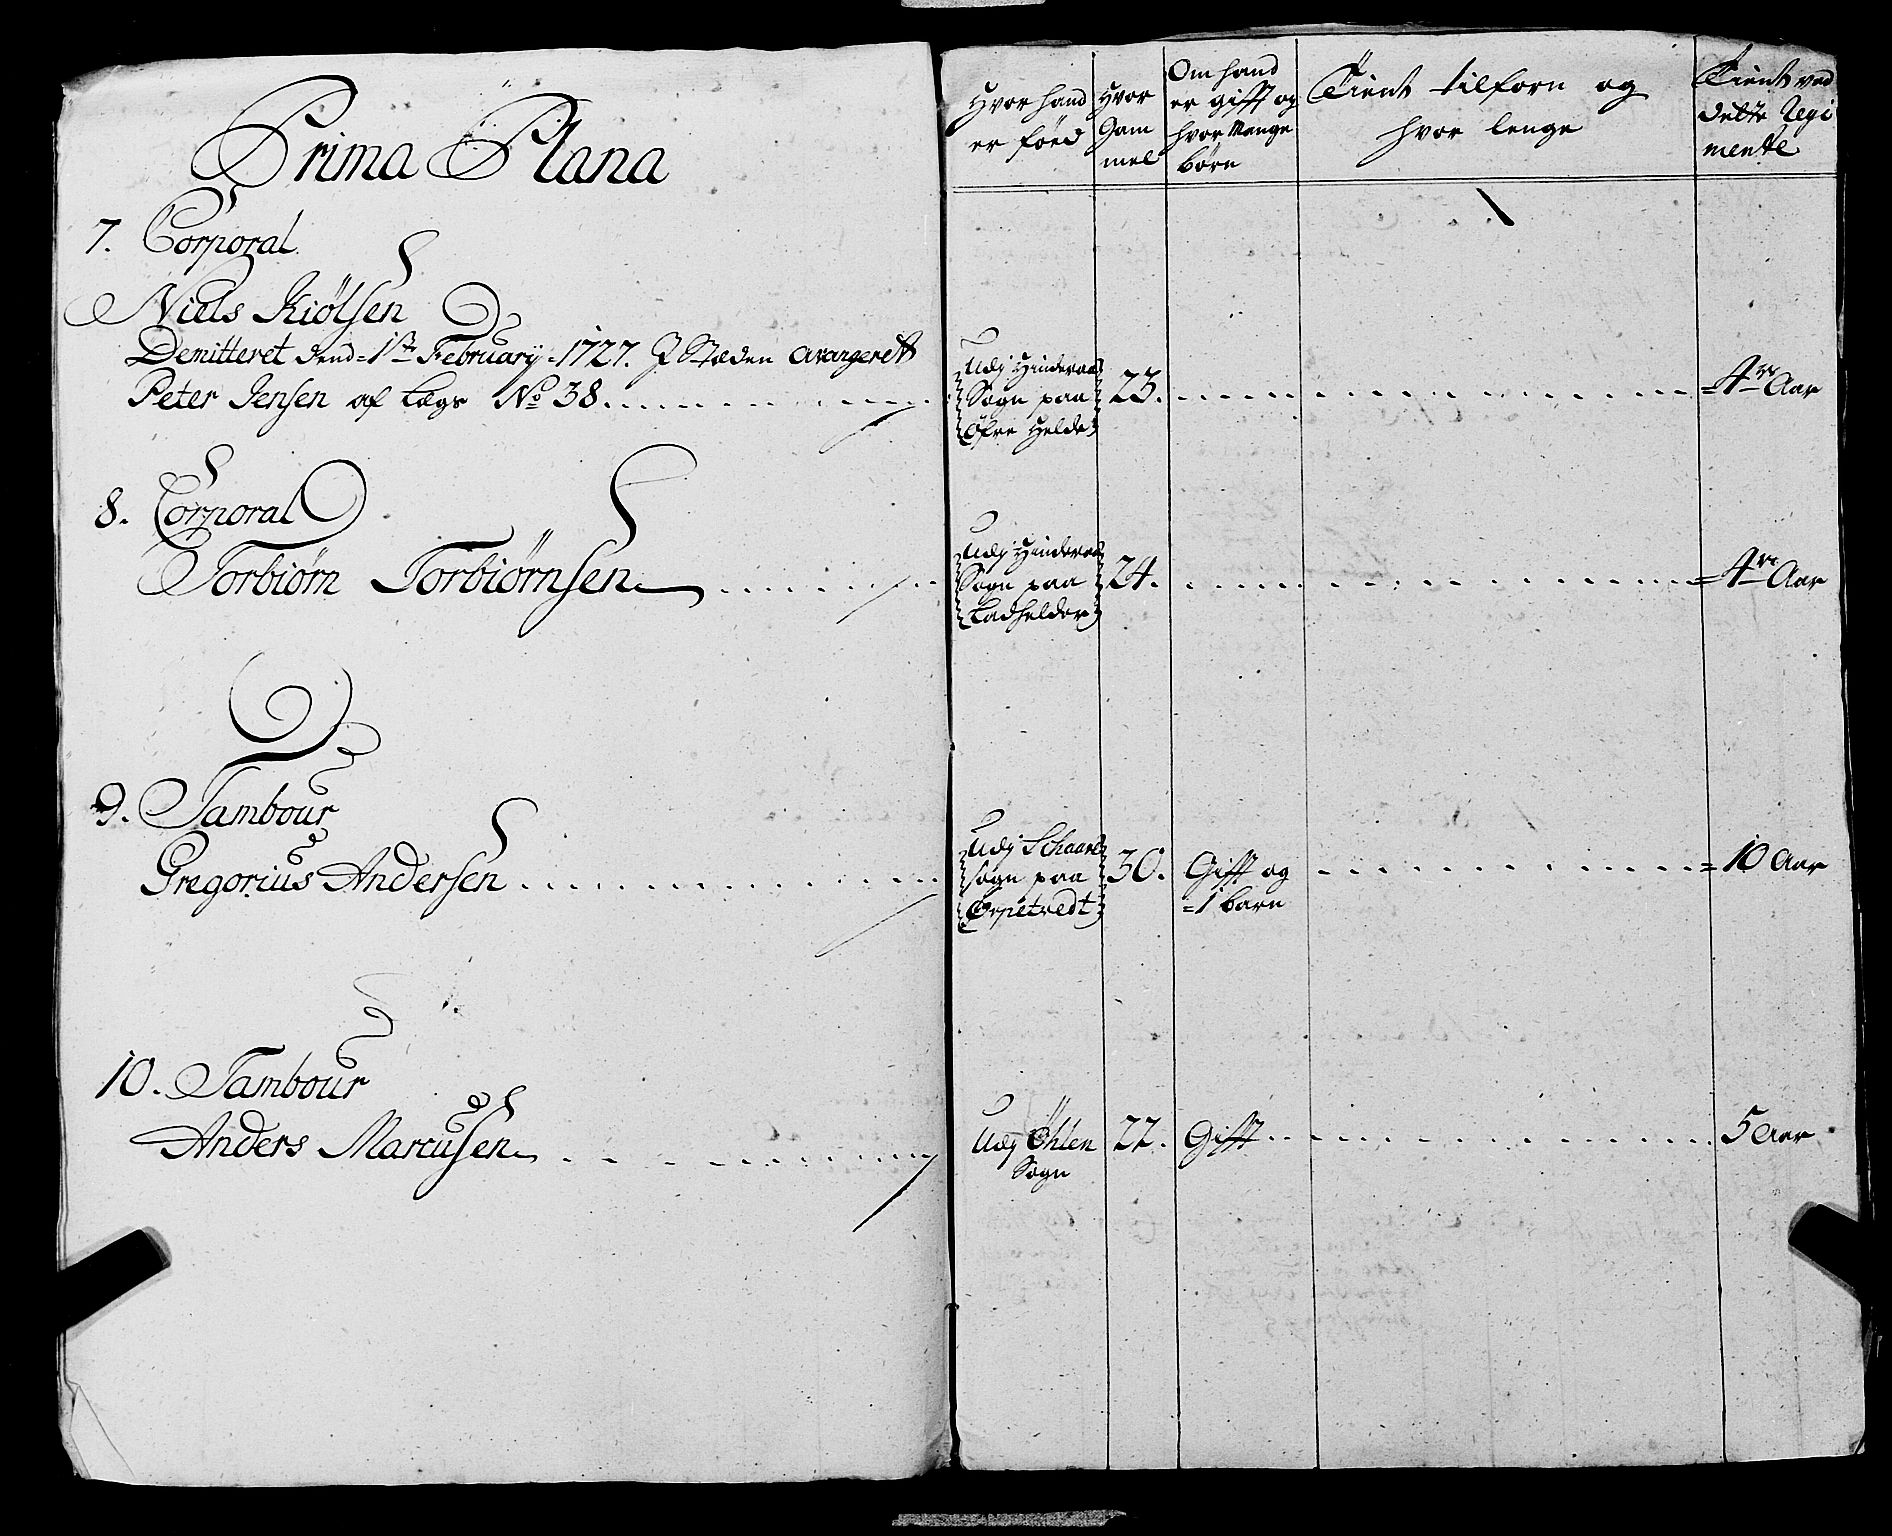 Prima Plana
7. Corporal
Niels Kiölsen
Demitteret dend =1ste February =1727. J Stæden avangeret
Peter Jensen af Lægs No 38.
8. Corporal
Torbiörn Torbiörnsen
9. Tambour
Gregorius Andersen
10. Tambour
Anders Marcussen
Hvor hand
er föed
Hvor
Gam
mel
Om hand
er gifft og
hvor Mange
börn
Tient tilforn og
hvor lenge
Tient ved
dette Regi
mente
Udj Hinderaa
Sogn paa
Öfre Helde
23.
=4re Aar
Udj Hinderaa
Sogn paa
Ladhelder
24.
=4re Aar
Udj Schaare
sogn paa
Örpetvedt
30.
Gifft og
=1 barn
=10 Aar
Udj Öhlen
Sogn
22.
Gifft
5 Aar